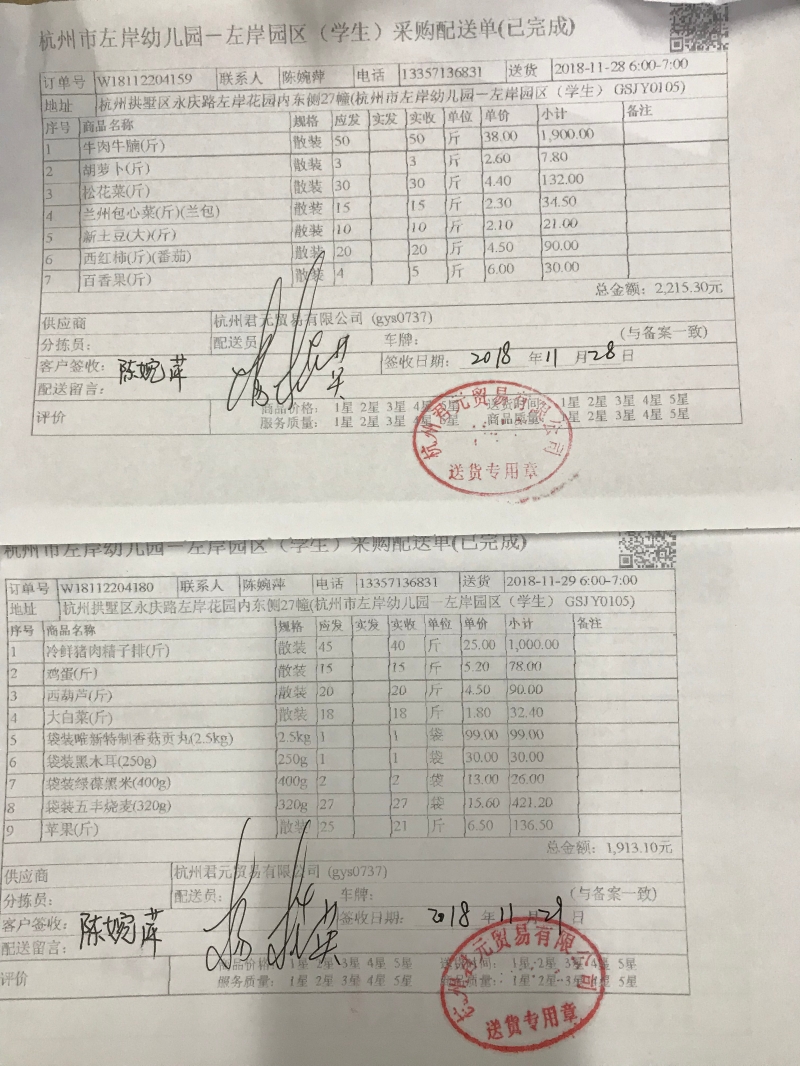 杭州市左岸幼儿园－左岸园区（学生）采购配送单(已完成)
订单号 W18112204159 联系人 陈婉萍 电话 13357136831 送货 2018-11-28 6:00-7:00
地址 杭州拱墅区永庆路左岸花园内东侧27幢(杭州市左岸幼儿园－左岸园区（学生） GSJY0105)
序号 商品名称 规格 应发 实发 实收 单位 单价 小计 备注
1 牛肉牛腩(斤) 散装 50 50 斤 38.00 1,900.00
2 胡萝卜(斤) 散装 3 3 斤 2.60 7.80
3 松花菜(斤) 散装 30 30 斤 4.40 132.00
4 兰州包心菜(斤)(兰包) 散装 15 15 斤 2.30 34.50
5 新土豆(大)(斤) 散装 10 10 斤 2.10 21.00
6 西红柿(斤)(番茄) 散装 20 20 斤 4.50 90.00
7 百香果(斤) 散装 4 5 斤 6.00 30.00
总金额：2,215.30元
供应商 杭州君元贸易有限公司 (gys0737)
分拣员： 配送员 车牌： (与备案一致)
客户签收： 陈婉萍 签收日期： 2018 年 11 月 28 日
配送留言：
评价 商品价格： 1星 2星 3星 4星 5星 送货时间： 1星 2星 3星 4星 5星
服务质量： 1星 2星 3星 4星 5星 商品质量： 1星 2星 3星 4星 5星
杭州君元贸易有限公司
送货专用章
杭州市左岸幼儿园－左岸园区（学生）采购配送单(已完成)
订单号 W18112204180 联系人 陈婉萍 电话 13357136831 送货 2018-11-29 6:00-7:00
地址 杭州拱墅区永庆路左岸花园内东侧27幢(杭州市左岸幼儿园－左岸园区（学生） GSJY0105)
序号 商品名称 规格 应发 实发 实收 单位 单价 小计 备注
1 冷鲜猪肉精子排(斤) 散装 45 40 斤 25.00 1,000.00
2 鸡蛋(斤) 散装 15 15 斤 5.20 78.00
3 西葫芦(斤) 散装 20 20 斤 4.50 90.00
4 大白菜(斤) 散装 18 18 斤 1.80 32.40
5 袋装唯新特制香菇贡丸(2.5kg) 2.5kg 1 1 袋 99.00 99.00
6 袋装黑木耳(250g) 250g 1 1 袋 30.00 30.00
7 袋装绿葆黑米(400g) 400g 2 2 袋 13.00 26.00
8 袋装五丰烧麦(320g) 320g 27 27 袋 15.60 421.20
9 苹果(斤) 散装 25 21 斤 6.50 136.50
总金额：1,913.10元
供应商 杭州君元贸易有限公司 (gys0737)
分拣员： 配送员： 车牌： (与备案一致)
客户签收： 陈婉萍 签收日期： 2018 年 11 月 29 日
配送留言：
评价 商品价格： 1星 2星 3星 4星 5星 送货时间： 1星 2星 3星 4星 5星
服务质量： 1星 2星 3星 4星 5星 商品质量： 1星 2星 3星 4星 5星
杭州君元贸易有限公司
送货专用章